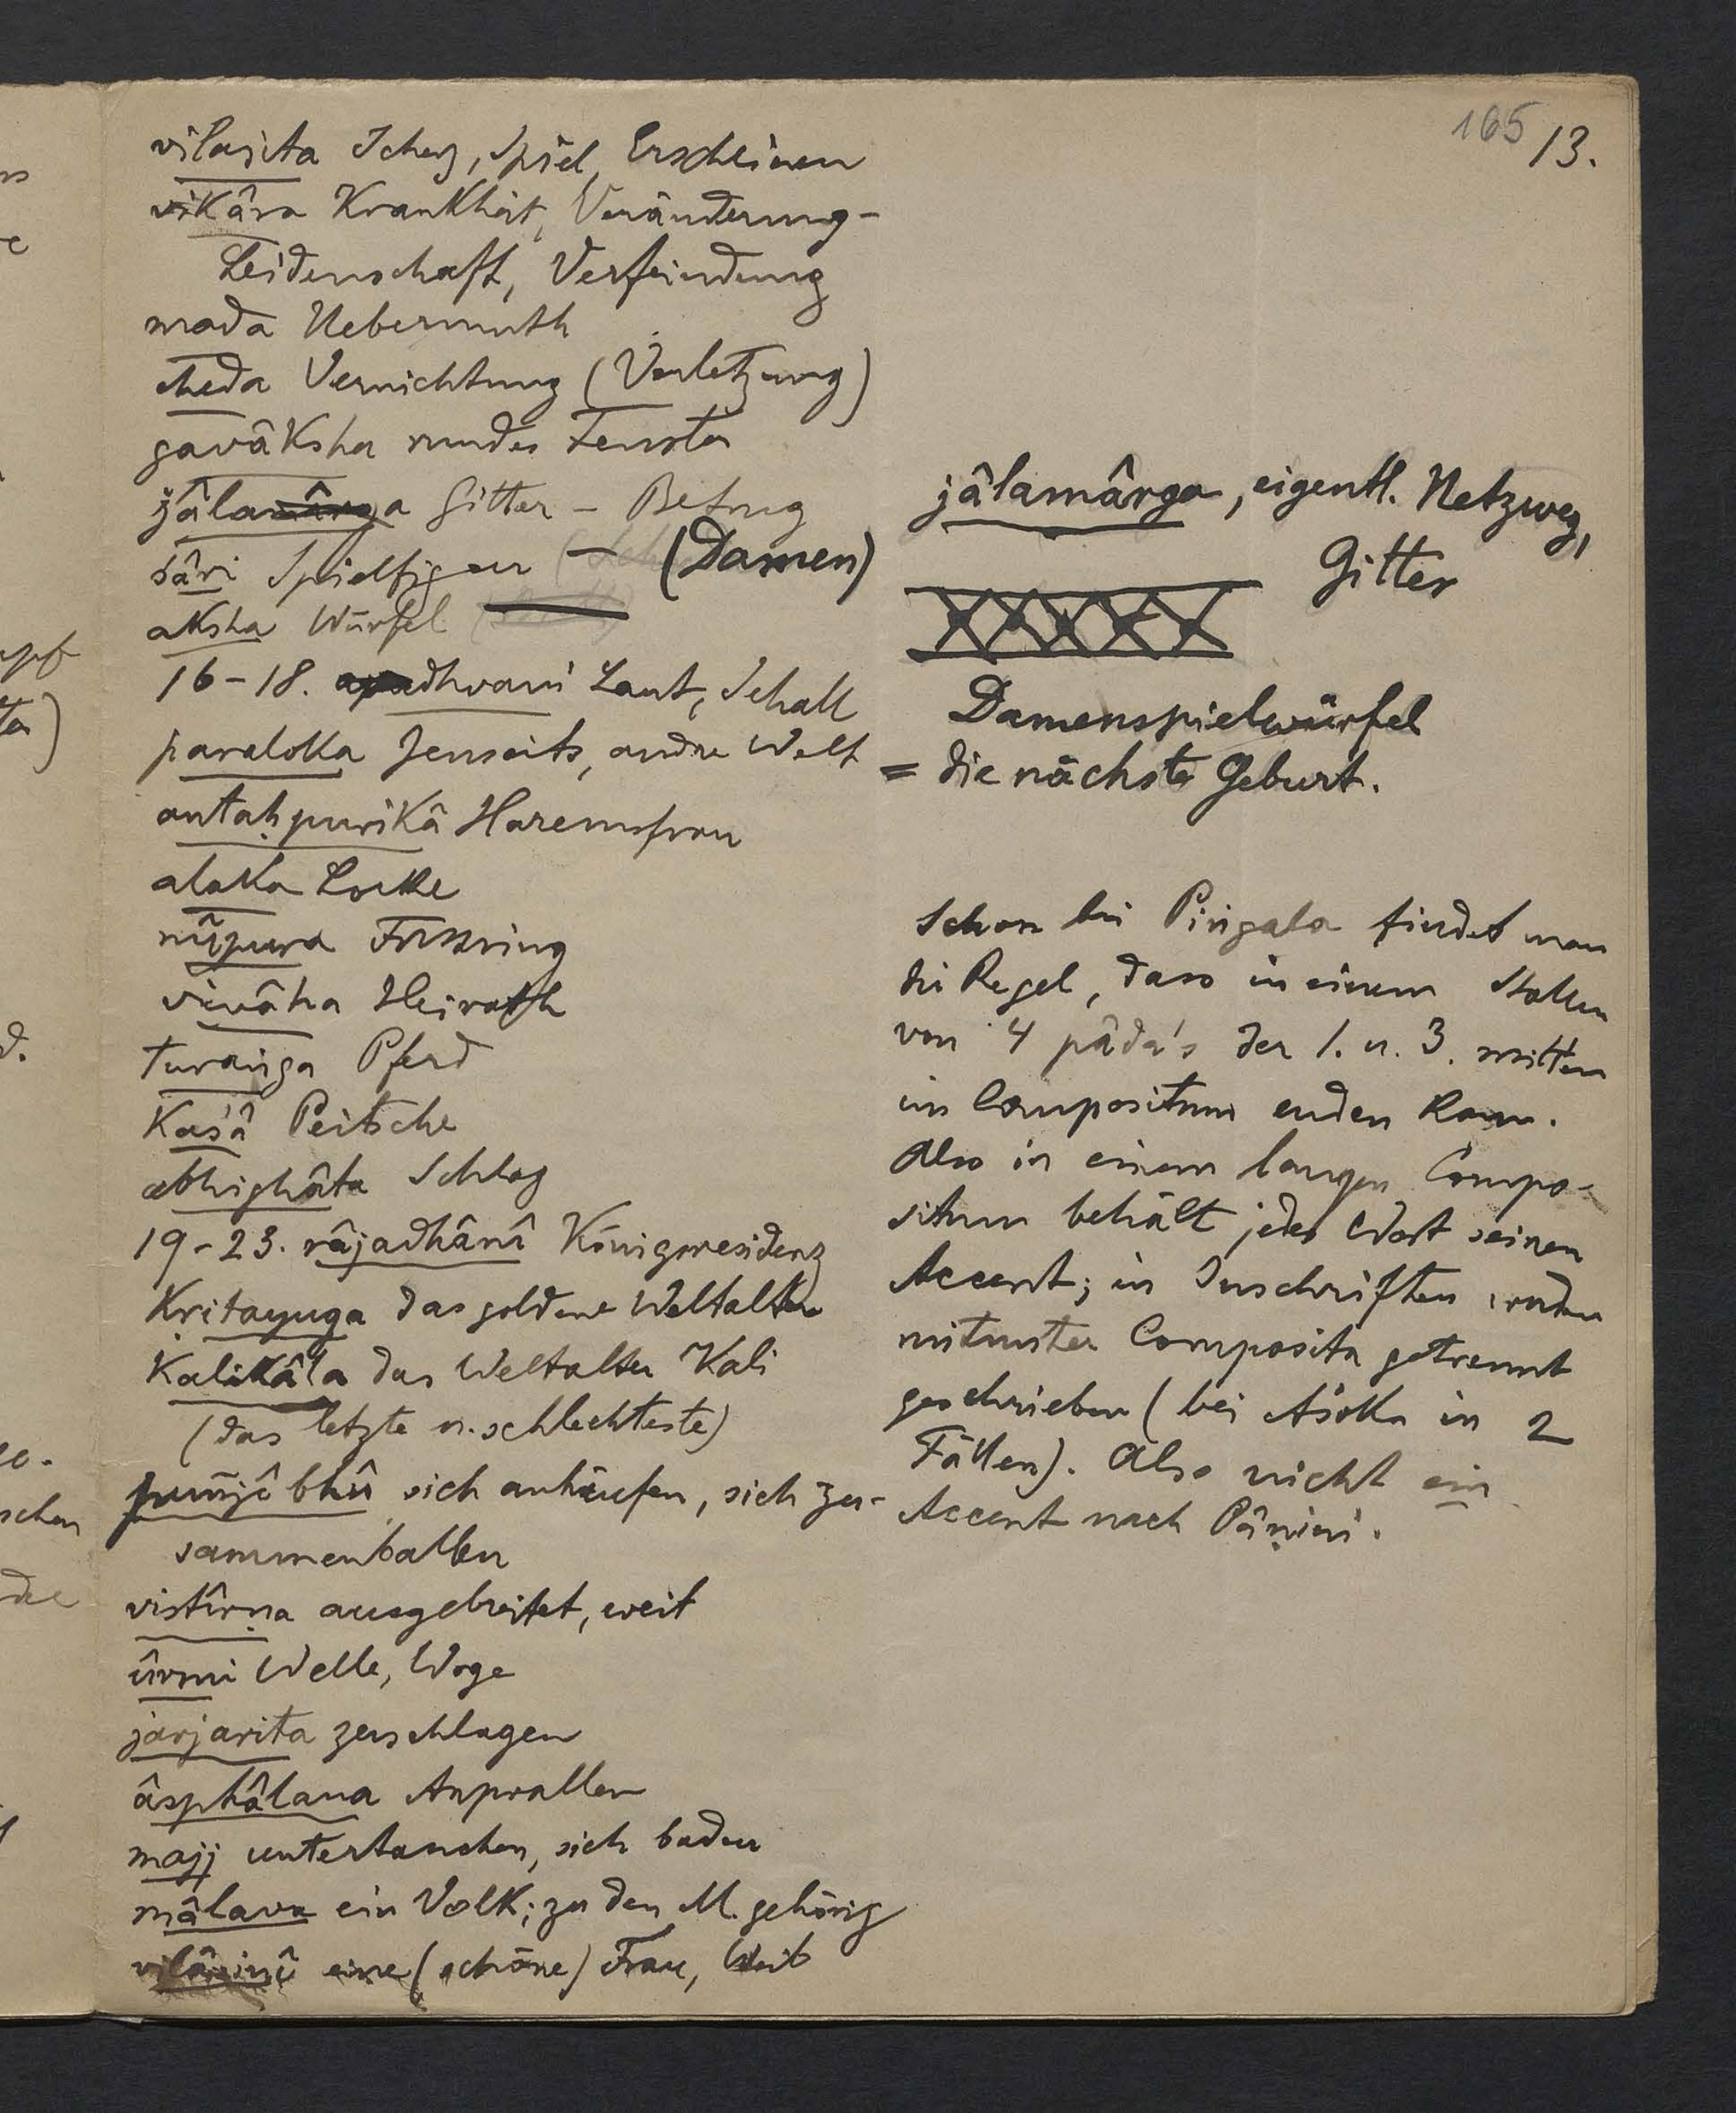 165 13.
vilasita Scherz, Spiel, Erscheinen
vikâra Krankheit, Veränderung -
Leidenschaft, Verfeindung
mada Uebermuth
cheda Vernichtung (Verletzung)
gavâksha rundes Fenster
jâlamârga Gitter - Betrug
sâri Spielfigur — (Damen)
aksha Würfel
16-18. dhvani Laut, Schall
paraloka Jenseits, andre Welt
antaḥpurikâ Haremsfrau
alaka Locke
nûpura Fussring
vivâha Heirath
turaṅga Pferd
Kaśâ Peitsche
abhighâta Schlag
19-23. râjadhânî Königsresidenz
Kṛitayuga das goldene Weltalter
Kalikâla das Weltalter Kali
(das letzte u. schlechteste)
puñjî bhû sich anhäufen, sich zu-
sammenballen
vistîrṇa ausgebreitet, weit
ûrmi Welle, Woge
jarjarita zerschlagen
âsphâlana Anprallen
majj untertauchen, sich baden
mâlava ein Volk; zu den M. gehörig
vilâsinî eine (schöne) Frau, Weib
jâlamârga, eigentl. Netzweg,
Gitter
Damenspielwürfel
= die nächste Geburt.
Schon bei Piṅgala findet man
die Regel, dass in einem Stollen
von 4 pâda's der 1. u. 3. mitten
im Compositum enden kann.
Also in einem langen Compo-
situm behält jedes Wort seinen
Accent; in Inschriften werden
mitunter Composita getrennt
geschrieben (bei Aśoka in 2
Fällen). Also nicht ein
Accent nach Pâṇini.